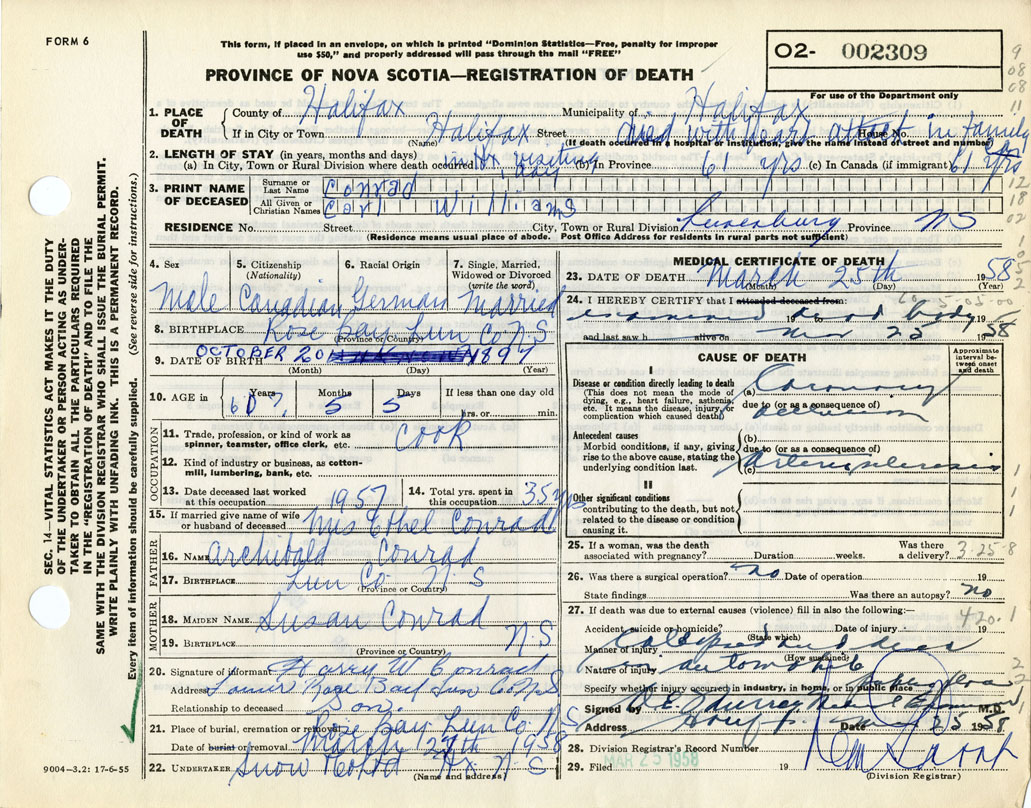 FORM 6
This form, if placed in an envelope, on which is printed "Dominion Statistics—Free, penalty for improper
use $50," and properly addressed will pass through the mail "FREE"
PROVINCE OF NOVA SCOTIA—REGISTRATION OF DEATH
02- 002309
For use of the Department only
1. PLACE OF DEATH
County of Halifax Municipality of Halifax
If in City or Town Halifax Street died with heart attack in family House No.
(Name) (If death occurred in a hospital or institution, give the name instead of street and number)
2. LENGTH OF STAY (in years, months and days)
(a) In City, Town or Rural Division where death occurred in Hx visiting 1 day (b) in Province 61 yrs (c) In Canada (if immigrant) 61 yrs
3. PRINT NAME OF DECEASED
Surname or Last Name Conrad
All Given or Christian Names Carl Williams
RESIDENCE No. Street City, Town or Rural Division Lunenburg Province NS
(Residence means usual place of abode. Post Office Address for residents in rural parts not sufficient)
4. Sex
Male
5. Citizenship (Nationality)
Canadian
6. Racial Origin
German
7. Single, Married, Widowed or Divorced (write the word)
Married
8. BIRTHPLACE Rose Bay Lun Co N.S
(Province or Country)
9. DATE OF BIRTH OCTOBER 20 1897
(Month) (Day) (Year)
10. AGE in
Years 60
Months 5
Days 5
If less than one day
hrs. or min.
OCCUPATION
11. Trade, profession, or kind of work as spinner, teamster, office clerk, etc. Cook
12. Kind of industry or business, as cotton-mill, lumbering, bank, etc.
13. Date deceased last worked at this occupation 1957
14. Total yrs. spent in this occupation 35 yrs
15. If married give name of wife or husband of deceased Mrs Ethel Conrad
FATHER
16. NAME Archibald Conrad
17. BIRTHPLACE Lun Co. N.S
(Province or Country)
MOTHER
18. MAIDEN NAME Susan Conrad
19. BIRTHPLACE N.S
(Province or Country)
20. Signature of informant Harry W Conrad
Address Lower Rose Bay Lun Co N.S
Relationship to deceased Son.
21. Place of burial, cremation or removal Rose Bay Lun Co. N S
Date of burial or removal March 27th 1958
22. UNDERTAKER Snow Co Ltd Hx N.S
(Name and address)
MEDICAL CERTIFICATE OF DEATH
23. DATE OF DEATH March 25th 1958
(Month) (Day) (Year)
24. I HEREBY CERTIFY that I attended deceased from:
examined dead body 19 to 19
and last saw h alive on 25 1958
CAUSE OF DEATH
Approximate interval between onset and death
I
Disease or condition directly leading to death
(This does not mean the mode of dying, e.g., heart failure, asthenia, etc. It means the disease, injury, or complication which caused death)
(a) Coronary
due to (or as a consequence of)
occlusion
Antecedent causes
Morbid conditions, if any, giving rise to the above cause, stating the underlying condition last.
(b)
due to (or as a consequence of)
(c) Arteriosclerosis
II
Other significant conditions
contributing to the death, but not related to the disease or condition causing it.
25. If a woman, was the death associated with pregnancy? Duration weeks. Was there a delivery?
3-25-8
26. Was there a surgical operation? no Date of operation 19
State findings Was there an autopsy? no
27. If death was due to external causes (violence) fill in also the following:—
420.1
Accident, suicide or homicide? Date of injury 19
(State which)
Manner of injury Collapsed and died
(How sustained)
Nature of injury in automobile
Specify whether injury occurred in industry, in home, or in public place
Signed by Murray Medical Examiner M.D.
Address Date 25 1958
28. Division Registrar's Record Number
29. Filed MAR 25 1958 19
(Division Registrar)
SEC. 14—VITAL STATISTICS ACT MAKES IT THE DUTY
OF THE UNDERTAKER OR PERSON ACTING AS UNDER-
TAKER TO OBTAIN ALL THE PARTICULARS REQUIRED
IN THE "REGISTRATION OF DEATH" AND TO FILE THE
SAME WITH THE DIVISION REGISTRAR WHO SHALL ISSUE THE BURIAL PERMIT.
WRITE PLAINLY WITH UNFADING INK. THIS IS A PERMANENT RECORD.
Every item of information should be carefully supplied. (See reverse side for instructions.)
9004—3.2: 17-6-55